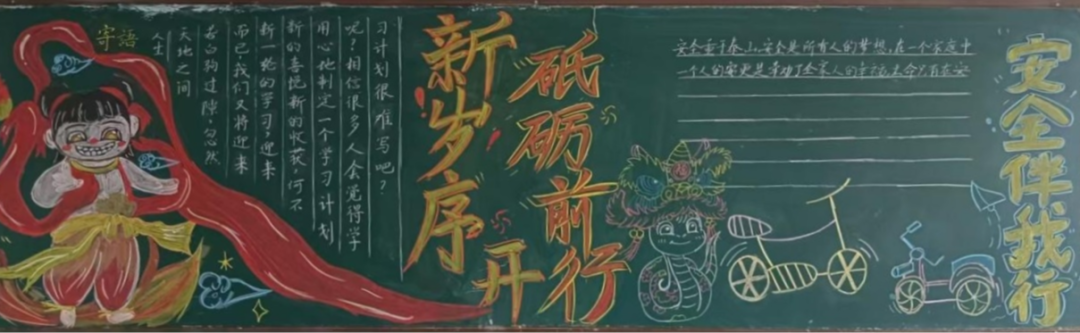 寄语
人生
天地之间
若白驹过隙,忽然
而已,我们又将迎来
新一轮的学习,迎来
新的喜悦新的收获,何不
用心地制定一个学习计划
呢?相信很多人会觉得学
习计划很难写吧?
新岁序开
砥砺前行
安全重于泰山,安全是所有人的梦想,在一个家庭中
一个人的安更是牵动了全家人的
安全伴我行